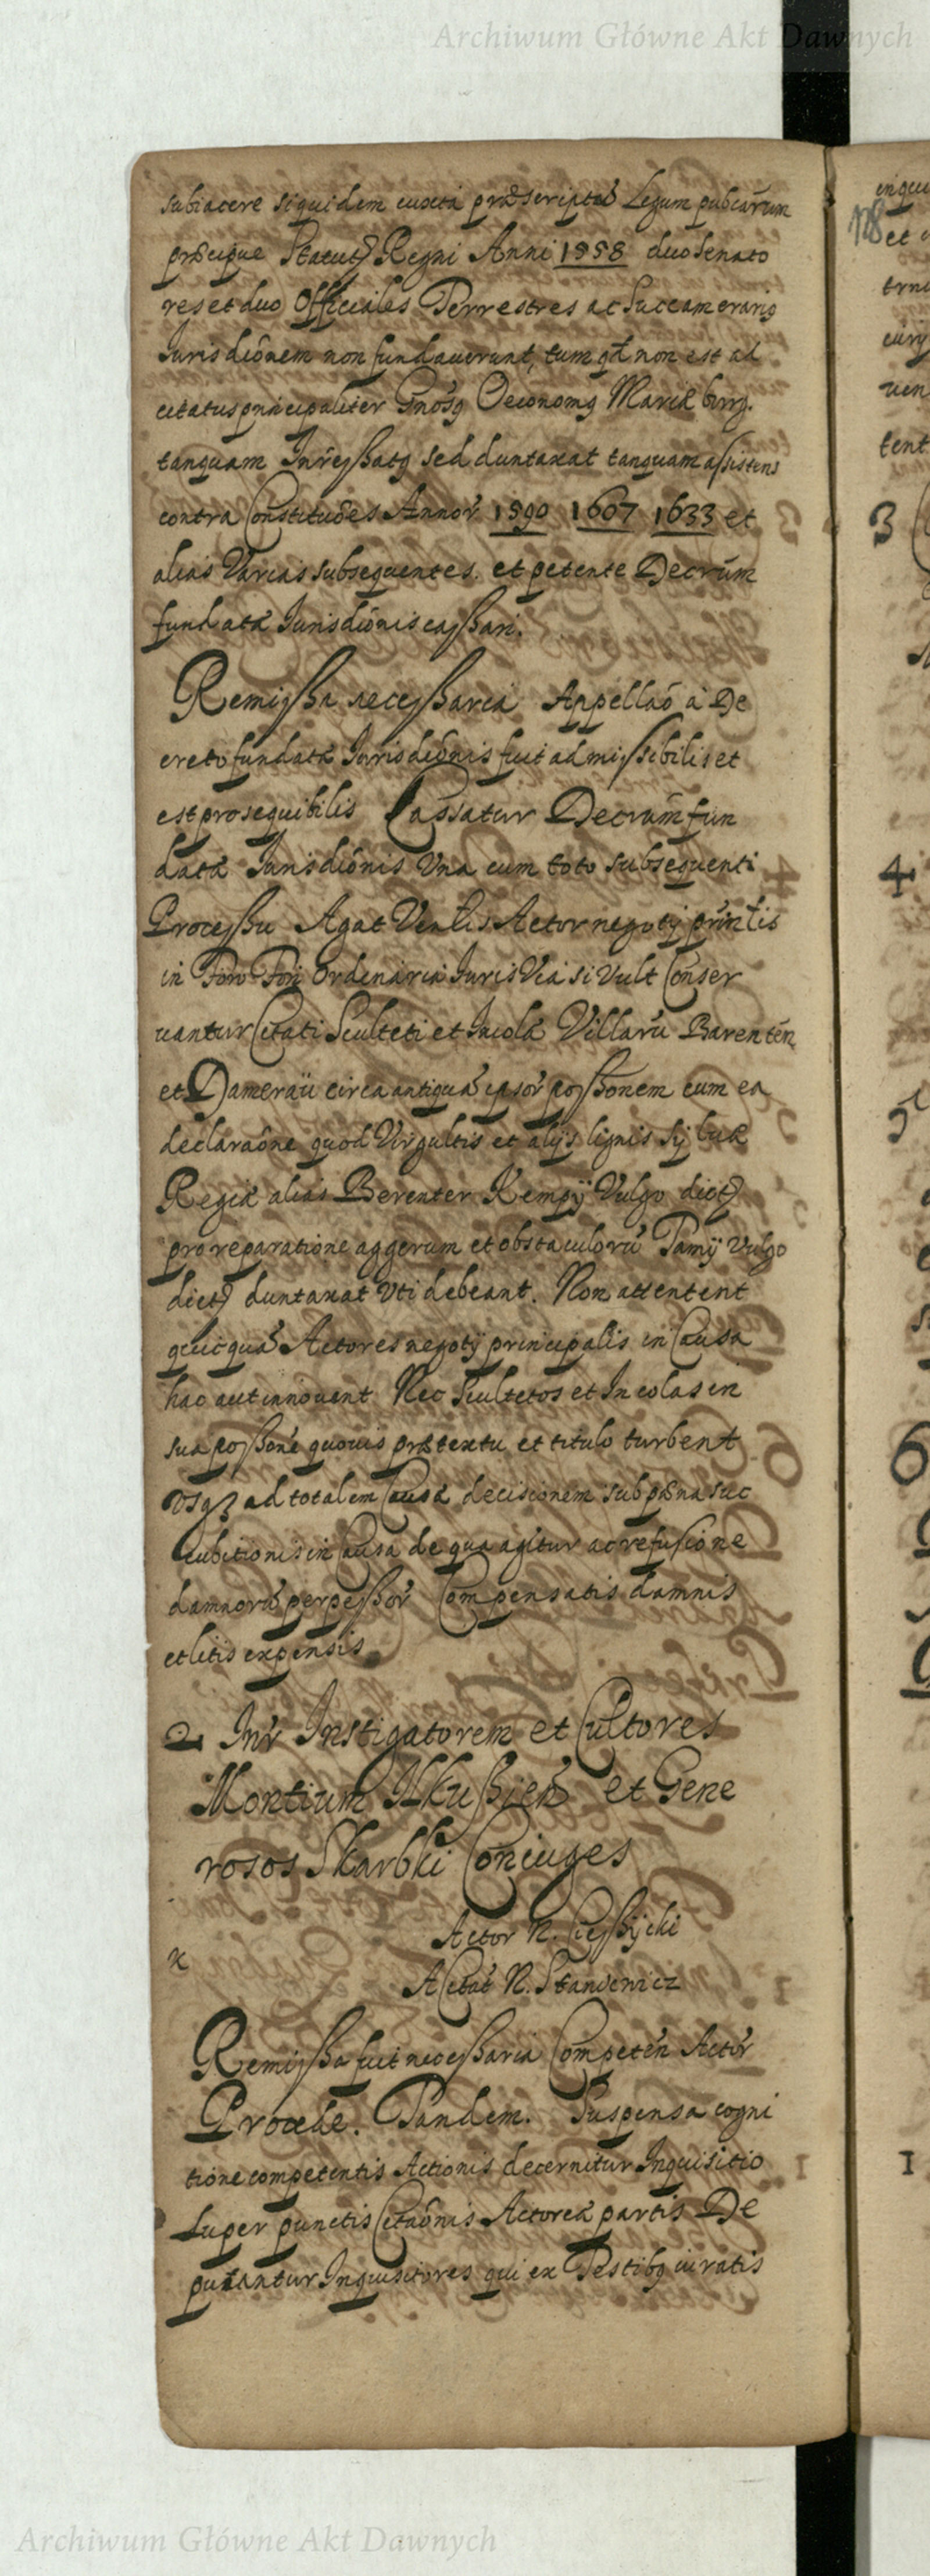 Archiwum Główne Akt Dawnych
subiacere siquidem iuxta præscriptū Legum pubcarum
præcipue Statutȝ Regni Anni 1558 duo Senato
res et duo Officiales Terrestres ac Succamerarig
Jurisdiõnem non fundauerunt, tum qd non est ad
citatus principaliter Gnõsg Oeconomg Mariæburg.
tanquam Inreßatg sed duntaxat tanquam assistens
contra Constituões Annor 1590 1607 1633 et
alias Varias subsequentes. et petente Decrūm
fundatæ Jurisdiõnis caßari.
Remißa neceßaria Appellaõ à De
creto fundatæ Jurisdiõnis fuit admissibilis et
est prosequibilis Cassatur Decrūm fun
datæ Jurisdiõnis Una cum toto subsequenti
Proceßu Agat Venlis Actor negotij prinlis
in Foro Fori Ordinaria Juris Via si Vult Conser
uantur Citati Sculteti et Incolæ Villarū Barentēn
et Dameraü circa antiquā ipsor poßonem cum ea
declaraõne quod Virgultis et alijs lignis Syluæ
Regiæ alias Berenter Kempÿ Vulgo dictȝ
pro reparatione aggerum et obstaculorū Tamÿ Vulgo
dictȝ duntaxat Vti debeant. Non attentent
quicquā Actores negotij principalis in Causa
hac aut innouent Nec Scultetos et Incolas in
sua poßone quouis prætextu et titulo turbent
Usqȝ ad totalem Causæ decisionem sub pæna suc
cubitionis in Causa de qua agitur ac refusione
damnorū perpeßor Compensatis damnis
et litis expensis
2 Inr Instigatorem et Cultores
Montium Ilkußien et Gene
rosos Skarbki Coniuges
Actor N. Cießÿcki
x
A Citat N. Stanewicz
Remißa fuit neceßaria Competēn Actor
Procede. Tandem. Suspensa cogni
tione competentis Actionis decernitur Inquisitio
super punctis Citaõnis Actoreæ partis De
putantur Inquisitores qui ex Testibg iuratis
Archiwum Główne Akt Dawnych